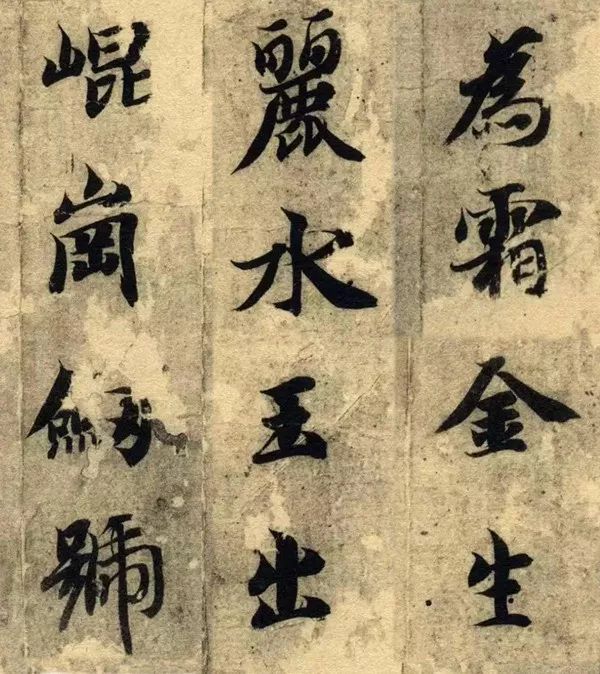 為霜金生
麗水玉出
崐崗劔號